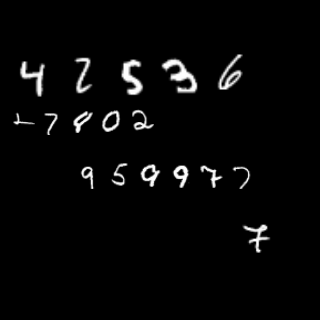 42536
+7802
959977
7